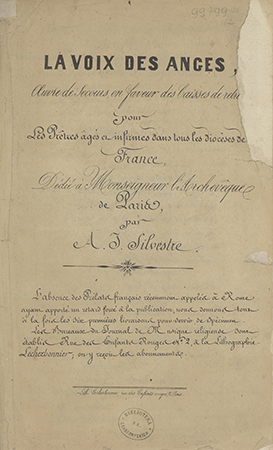 LA VOIX DES ANGES,
Œuvre de Secours en faveur des Caisses de retr
pour
Les Prêtres agés et infirmes dans tous les diocèses de
France,
Dédié à Monseigneur l'Archevêque
de Paris,
par
A. J. Silvestre.
L'absence des Prélats français récemment appelés à Rome
ayant apporté un retard forcé à la publication, nous donnons tout
à la fois les dix premières livraisons pour servir de spécimen.
Les Bureaux du Journal de Musique religieuse sont
établis Rue des Enfants Rouges Nº 2, à la Lithographie
Lecherbonnier; on y reçoit les abonnements.
Lith. Lecherbonnier rue des Enfants rouges 2. Paris
BIBLIOTECA